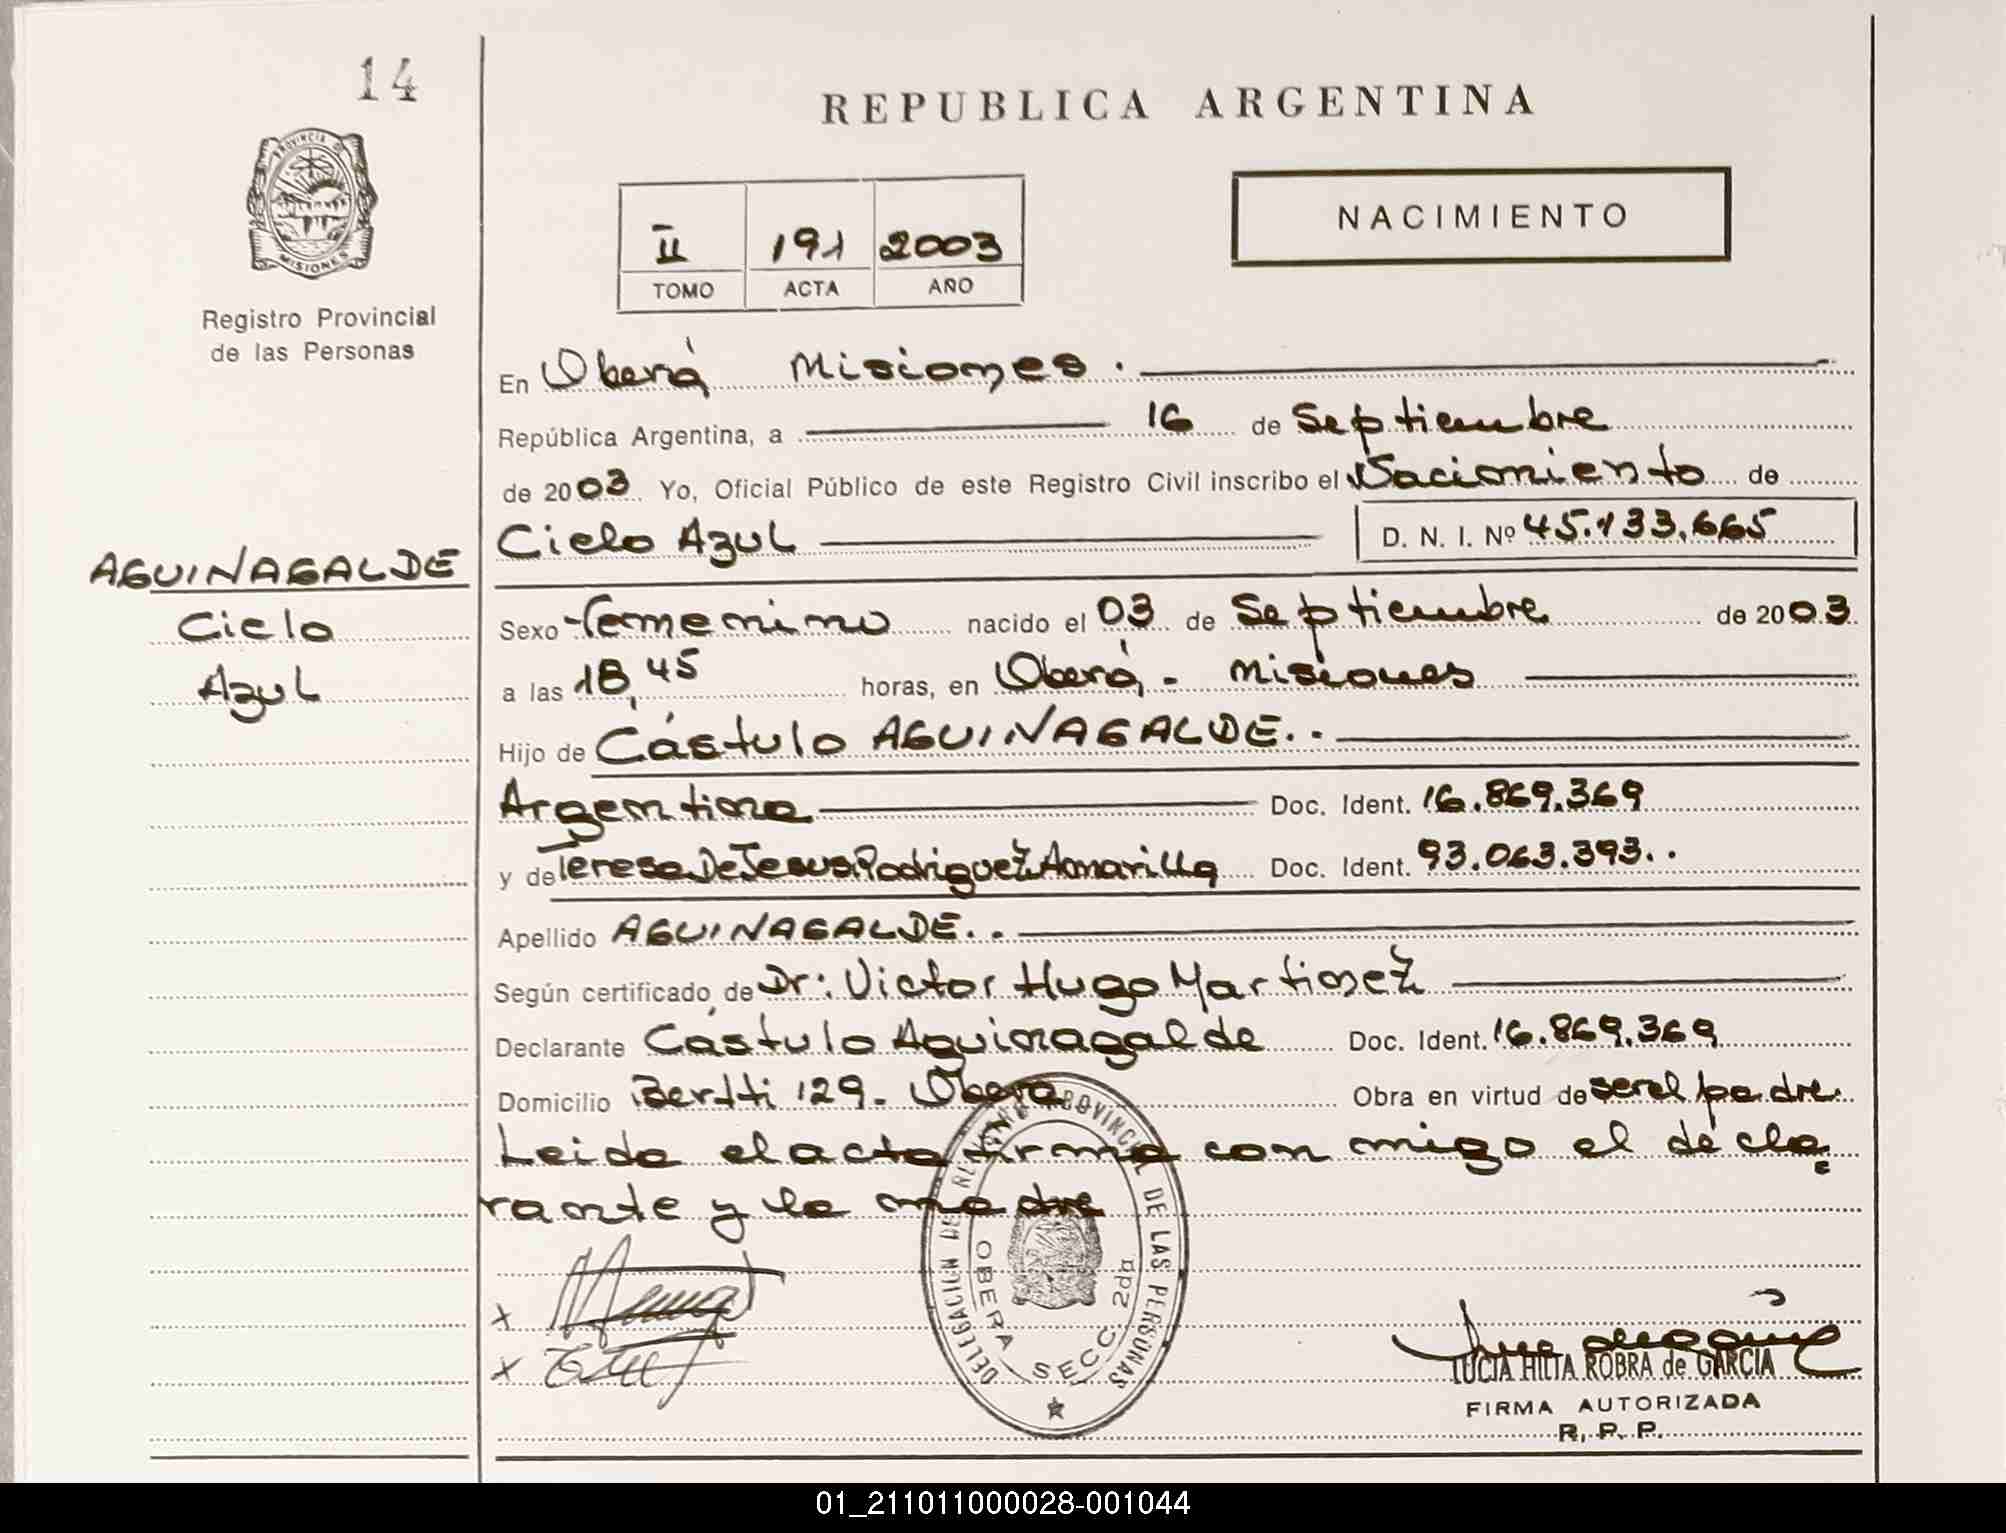 14
REPUBLICA ARGENTINA
PROVINCIA DE
MISIONES
NACIMIENTO
II 191 2003
TOMO ACTA AÑO
Registro Provincial
de las Personas
En Oberá Misiones.
República Argentina, a 16 de Septiembre
de 2003 Yo, Oficial Público de este Registro Civil inscribo el Nacimiento de
Cielo Azul D. N. I. Nº 45.133.665
AGUINAGALDE
Cielo
Azul
Sexo Femenino nacido el 03 de Septiembre de 2003
a las 18,45 horas, en Oberá, - Misiones
Hijo de Cástulo AGUINAGALDE..
Argentina Doc. Ident. 16.869.369
y de Teresa De Jesus Rodriguez Amarilla Doc. Ident. 93.063.393..
Apellido AGUINAGALDE..
Según certificado de Dr: Victor Hugo Martinez
Declarante Cástulo Aguinagalde Doc. Ident. 16.869.369
Domicilio Bertti 129- Oberá Obra en virtud de ser el padre.
Leida el acta firma con migo el decla=
rante y la madre
DELEGACION DEL REGISTRO PROVINCIAL DE LAS PERSONAS
OBERA SECC. 2da
x
x
LUCIA HILTA ROBRA de GARCIA
FIRMA AUTORIZADA
R. P. P.
01_211011000028-001044